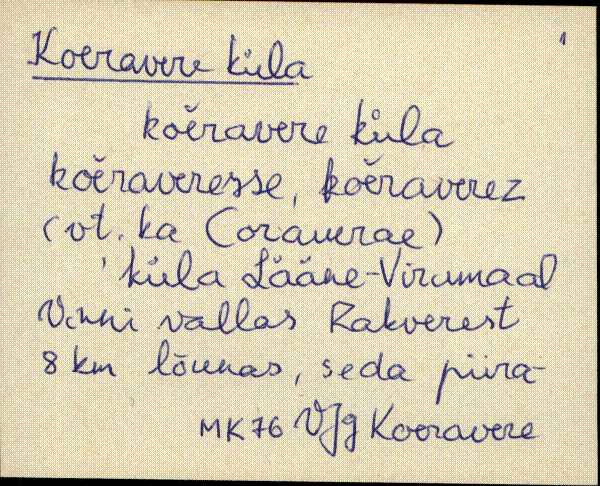 Koeravere küla 1
koĕravere kü̬la
koĕraveresse, koĕraverez
(vt. ka Coraverae)
'küla Lääne-Virumaal
Vinni vallas Rakverest
8 km lõunas, seda piira-
MK76 VJg Koeravere